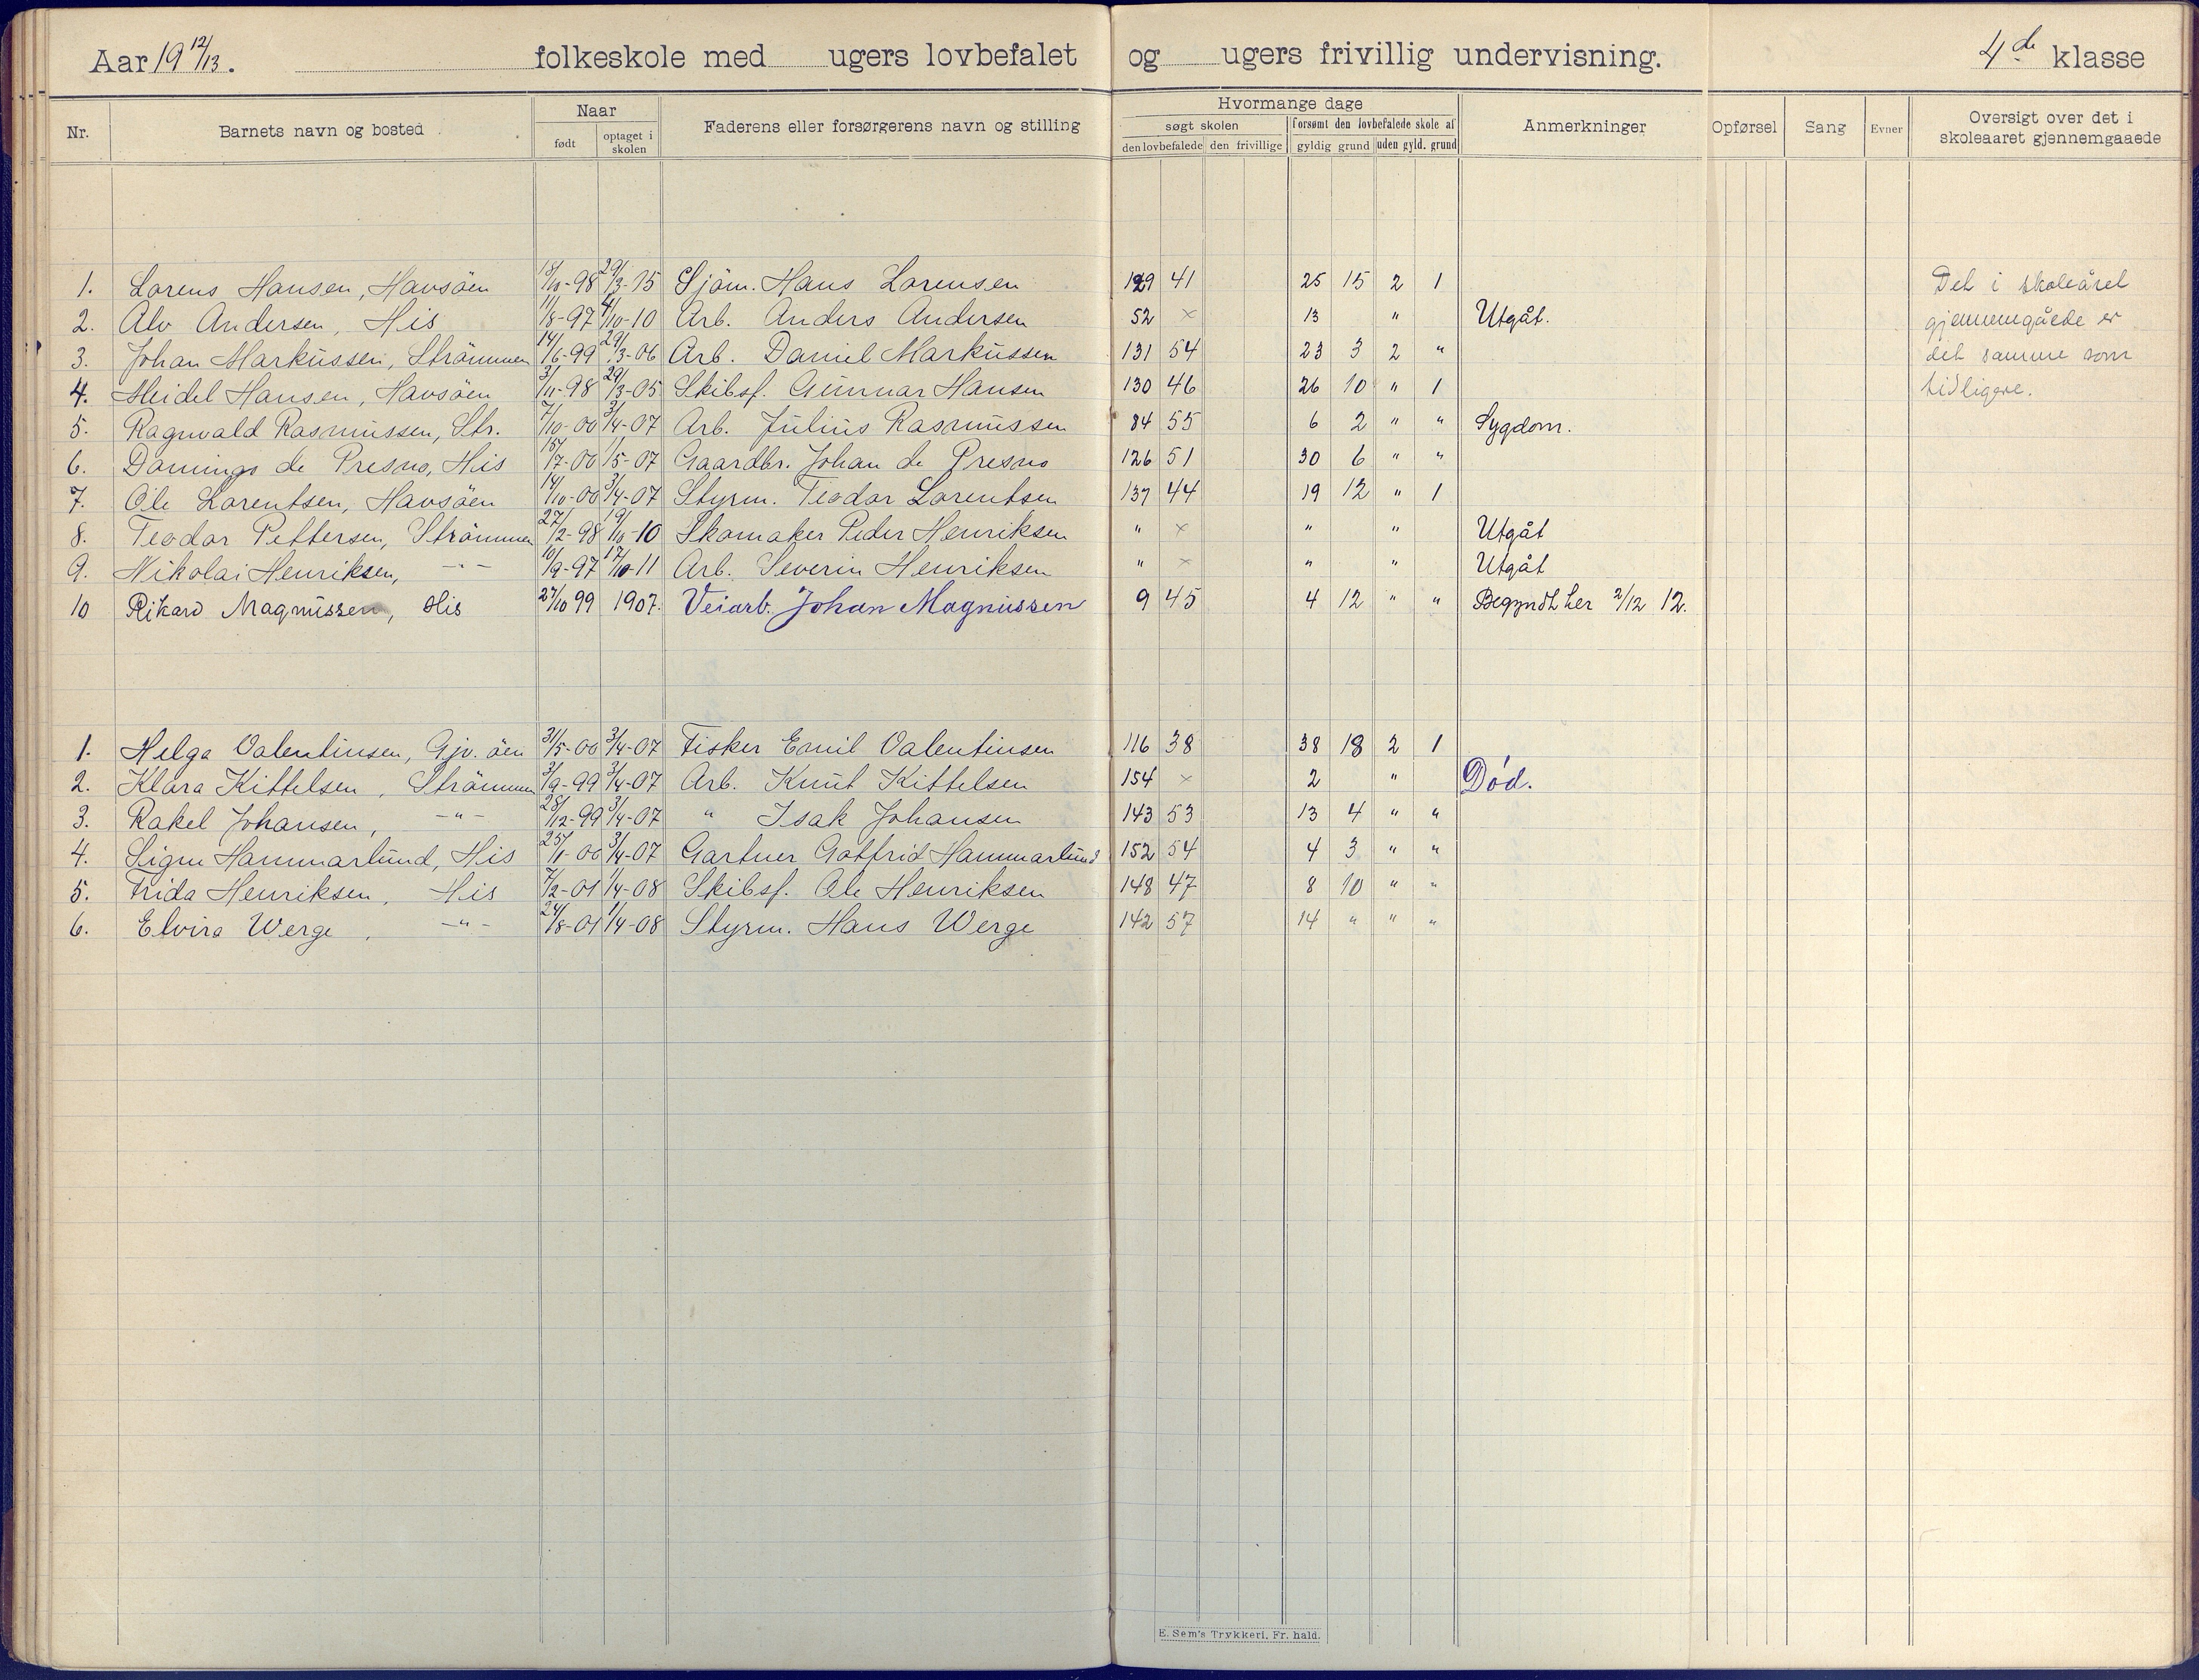 Aar 19 12/13. folkeskole med ugers lovbefalet og ugers frivillig undervisning. 4de klasse
Nr. Barnets navn og bosted Naar født optaget i skolen Faderens eller forsørgerens navn og stilling Hvormange dage søgt skolen den lovbefalede den frivillige forsømt den lovbefalede skole af gyldig grund uden gyld. grund Anmerkninger Opførsel Sang Evner Oversigt over det i skoleaaret gjennemgaaede
1. Lorens Hansen, Havsöen 18/10-98 29/3-15 Sjöm. Hans Lorensen 129 41 25 15 2 1 Det i skoleåret
2. Alv Andersen, His 11/8-97 4/10-10 Arb. Anders Andersen 52 × 13 " Utgåt. gjennemgåede er
3. Johan Markussen, Strömmen 14/6-99 29/3-06 Arb. Daniel Markussen 131 54 23 3 2 " det samme som
4. Meidel Hansen, Havsöen 3/11-98 29/3-05 Skibsf. Gunnar Hansen 130 46 26 10 " 1 tidligere.
5. Ragnvald Rasmussen, Str. 7/10-00 3/4-07 Arb. Julius Rasmussen 84 55 6 2 " " Sygdom.
6. Domingo de Presno, His 15/7-00 1/5-07 Gaardbr. Johan de Presno 126 51 30 6 " "
7. Ole Lorentsen, Havsöen 14/10-00 3/4-07 Styrm. Teodor Lorentsen 137 44 19 12 " 1
8. Teodor Pettersen, Strömmen 27/2-98 19/10-10 Skomaker Peder Henriksen " × " " Utgåt
9. Nikolai Henriksen, -"- 10/9-97 17/10-11 Arb. Severin Henriksen " × " " Utgåt
10 Rikard Magnussen, His 27/10 99 1907. Veiarb. Johan Magnussen 9 45 4 12 " " Begyndt her 2/12 12.
1. Helga Valentinsen, Gjv. öen 31/5-00 3/4-07 Fisker Emil Valentinsen 116 38 38 18 2 1
2. Klara Kittelsen, Strömmen 3/9-99 3/4-07 Arb. Knut Kittelsen 154 × 2 " Död.
3. Rakel Johansen, -"- 28/12-99 3/4-07 " Isak Johansen 143 53 13 4 " "
4. Signe Hammarlund, His 25/1-00 3/4-07 Gartner Gotfrid Hammarlund 152 54 4 3 " "
5. Frida Henriksen, His 7/2-01 1/4-08 Skibsf. Ole Henriksen 148 47 8 10 " "
6. Elvira Werge, -"- 24/8-01 1/4-08 Styrm. Hans Werge 142 57 14 " " "
E. Sem's Trykkeri, Fr. hald.